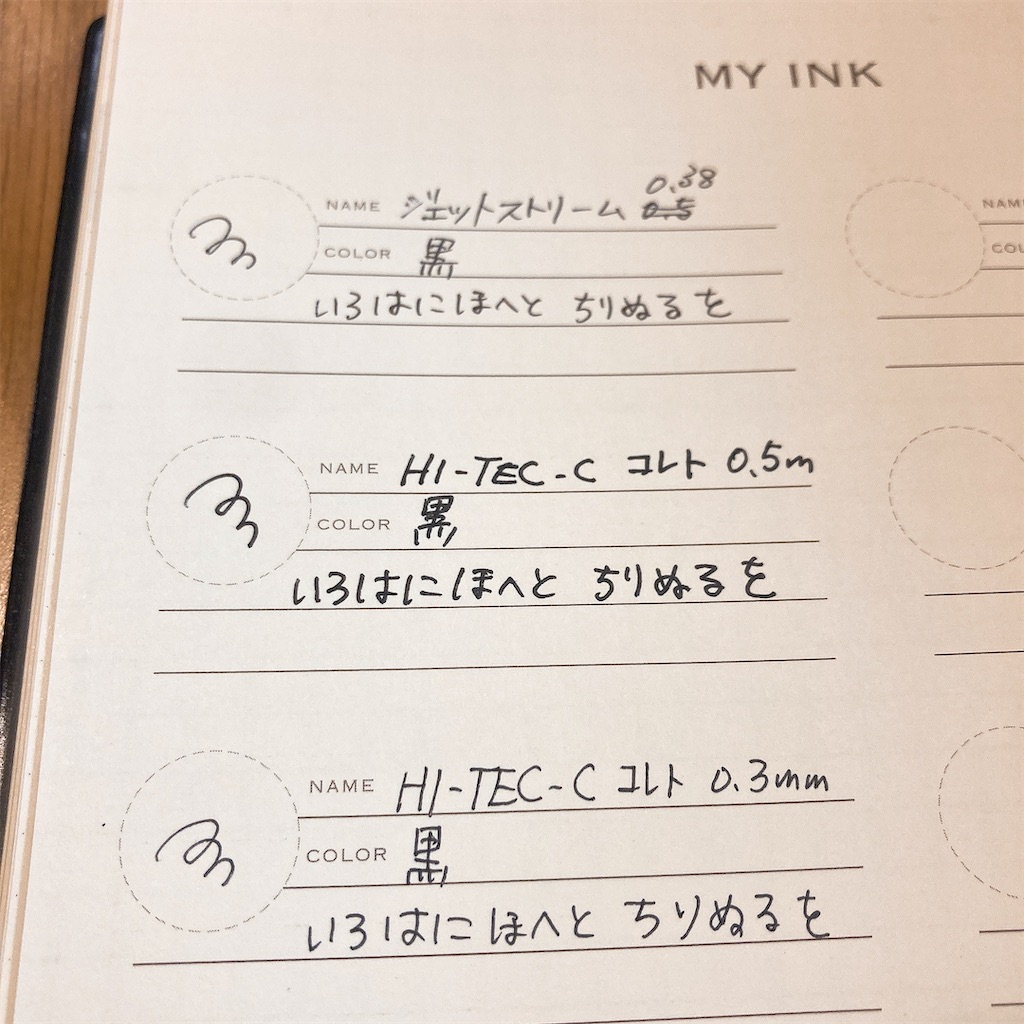 MY INK
NAME ジェットストリーム 0.5 0.38
COLOR 黒
いろはにほへと ちりぬるを
NAME HI-TEC-C コレト 0.5m
COLOR 黒
いろはにほへと ちりぬるを
NAME HI-TEC-C コレト 0.3mm
COLOR 黒
いろはにほへと ちりぬるを
NAME